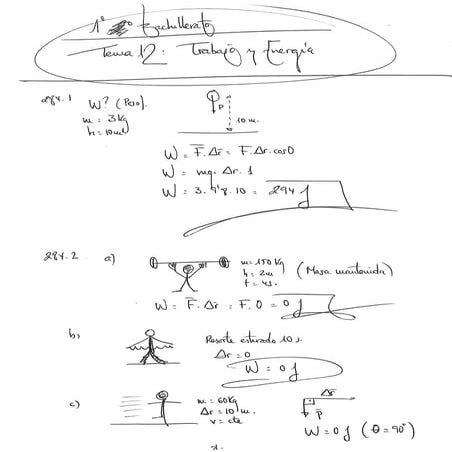 1º Bachillerato
Tema 12: Trabajo y Energía
284.1 W? (Peso).
m = 3kg
h = 10m
P
10 m.
W = F̄. Δr̄ = F. Δr. cos0
W = mg. Δr. 1
W = 3. 9'8. 10 = 294 J
284.2 a)
m = 150 kg
h = 2m (Masa mantenida)
t = 4s.
W = F̄. Δr̄ = F. 0 = 0 J
b)
Resorte estirado 10 s.
Δr = 0
W = 0 J
c)
m = 60kg
Δr = 10 m.
v = cte
Δr̄
P̄
W = 0 J (θ = 90°)